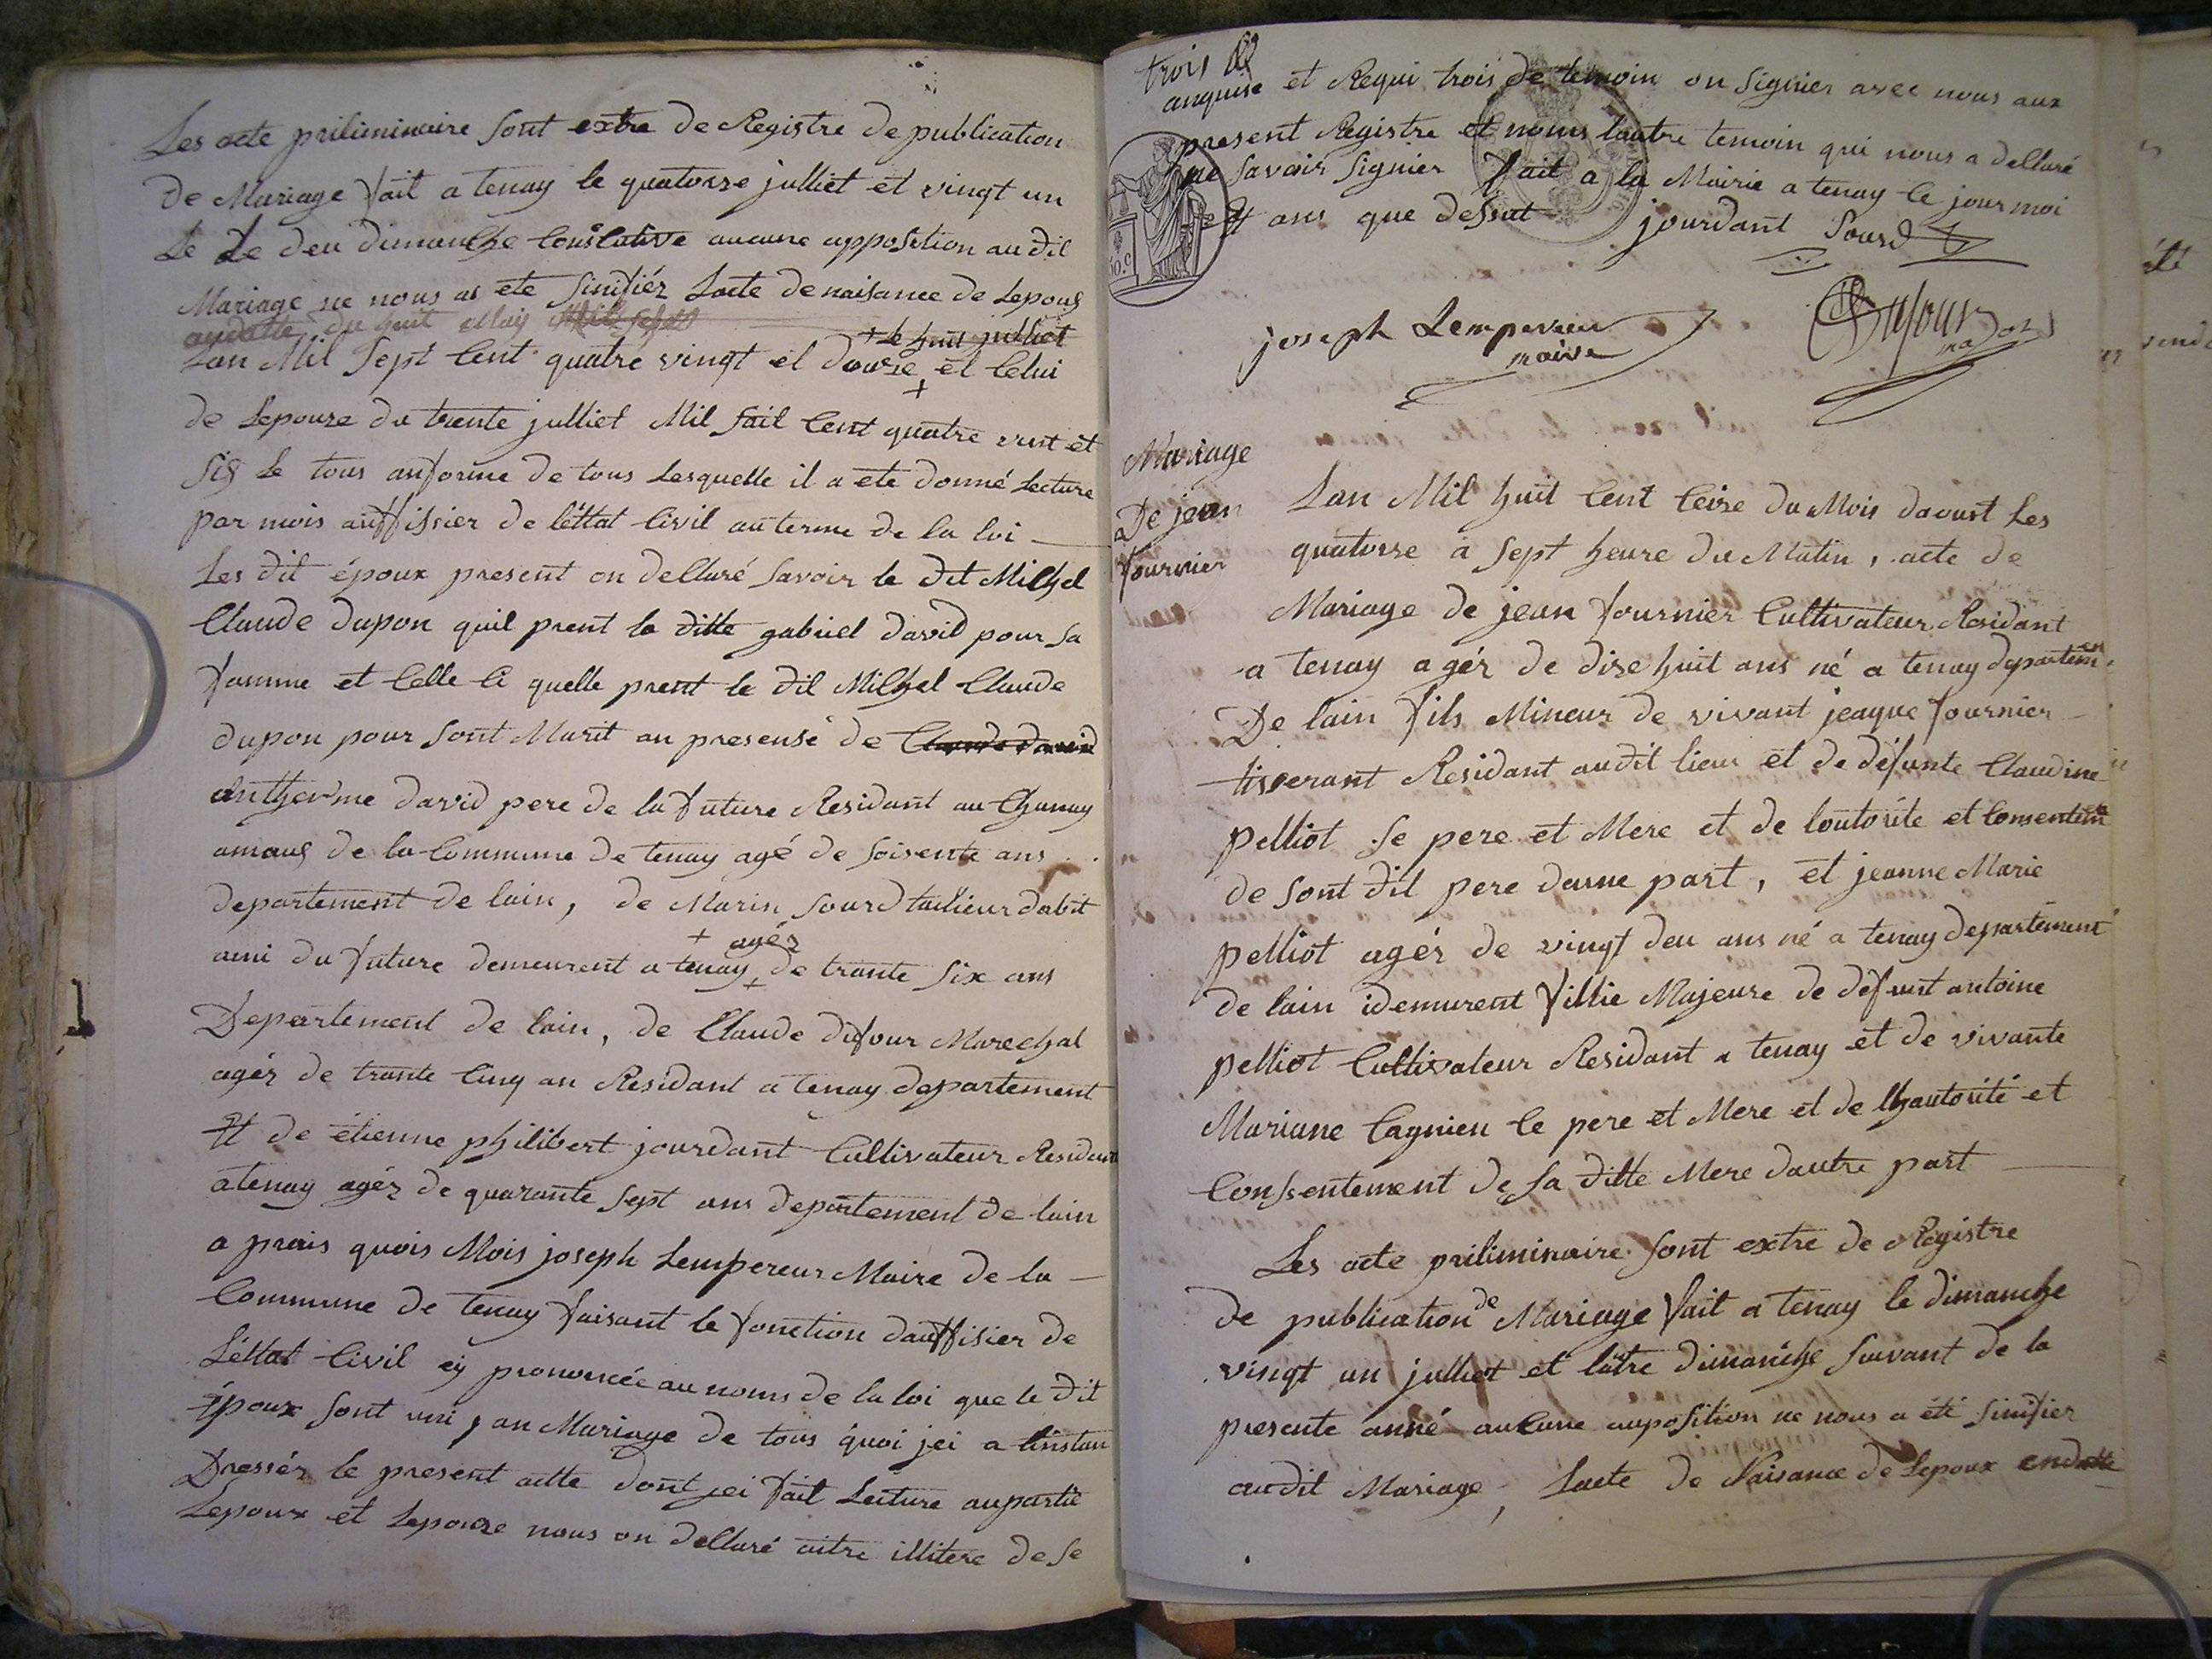 Les acte priliminaire sont extre de Registre de publication
de Mariage fait a tenay le quatorse julliet et vingt un
Le de deu dimanche Conscutive aucune apposition au dit
Mariage ne nous as ete sinifiér Lacte de naisance de Lepous
audatte du huit May Mil sept
+ Le huit julliet
Lan Mil Sept Cent quatre vingt et douse + et Celui
de Lepouze du trente julliet Mil sait Cent quatre vint et
Sis Le tous anforme de tous Lesquelle il a ete donné Lecture
par mois auffissier de léttat Civil au terme de la loi
Les dit époux present on dellaré Savoir le dit Michel
Claude dupon quil prent la ditte gabriel david pour sa
famme et Celle Ci quelle prent le dit Michel Claude
dupon pour sont Marit an presense de Claude david
antherme david pere de la future Residant au Chanay
amaus de la Commune de tenay agé de soisente ans
departement de lain, de Marin sourd tailieur dabit
+ agér
ami du future demeurent a tenay + de trante six ans
Departement de lain, de Claude dufour Marechal
agér de trante Cinq an Residant a tenay departement
Et de étienne philibert jourdant Cultivateur Residant
a tenay agér de quarante sept ans departement de lain
a prais quois Mois joseph Lempereur Maire de la
Commune de tenay faisant le fonction dauffisier de
Léttat Civil ej prononcée au noms de la loi que le dit
époux sont uni, an Mariage de tous quoi jei a linstan
Dressér le present actte dont jei fait Lecture aupartie
Lepoux et Lepouze nous on dellaré aitre illitere de se
trois
anquise et Requi trois de temoin on signier avec nous aux
present Registre et noms lautre temoin qui nous a dellaré
ne savoir signier fait a la Mairie a tenay le jour moi
et ans que dessut jourdant Sourd
joseph Lempereur
maire
Dufour
Mariage
De jean
fournier
Lan Mil huit Cent Ceize du Mois daoust Les
quatorse a sept heure du Matin, acte de
Mariage de jean fournier Cultivateur Residant
a tenay agér de dise huit ans né a tenay departemen
De lain fils Mineur de vivant jeaque fournier
tisserant Residant audit lieu et de défunte Claudine
pelliot se pere et Mere et de loutorite et Consentem
de sont dit pere dune part, et jeanne Marie
pelliot agér de vingt deu ans né a tenay departement
de lain idemurent fillie Majeure de défunt antoine
pelliot Cultivateur Residant a tenay et de vivante
Mariane Cagnieu Ce pere et Mere et de lhautorité et
Consentement de sa ditte Mere dautre part
Les acte priliminaire sont extre de Régistre
de publication de Mariage fait a tenay le dimanche
vingt un julliet et lotre dimanche suivant de la
presente anné aucune auposition ne nous a été sinifier
audit Mariage, Lacte de Naisance de Lepoux endatte